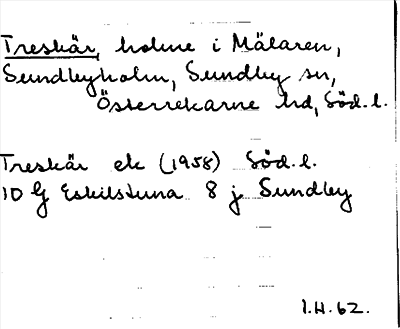 Treskär, holme i Mälaren,
Sundbyholm, Sundby sn,
Österrekarne hd, Söd. l.
Treskär ek (1958) Söd. l.
10 G Eskilstuna 8 j Sundby
I.H. 62.